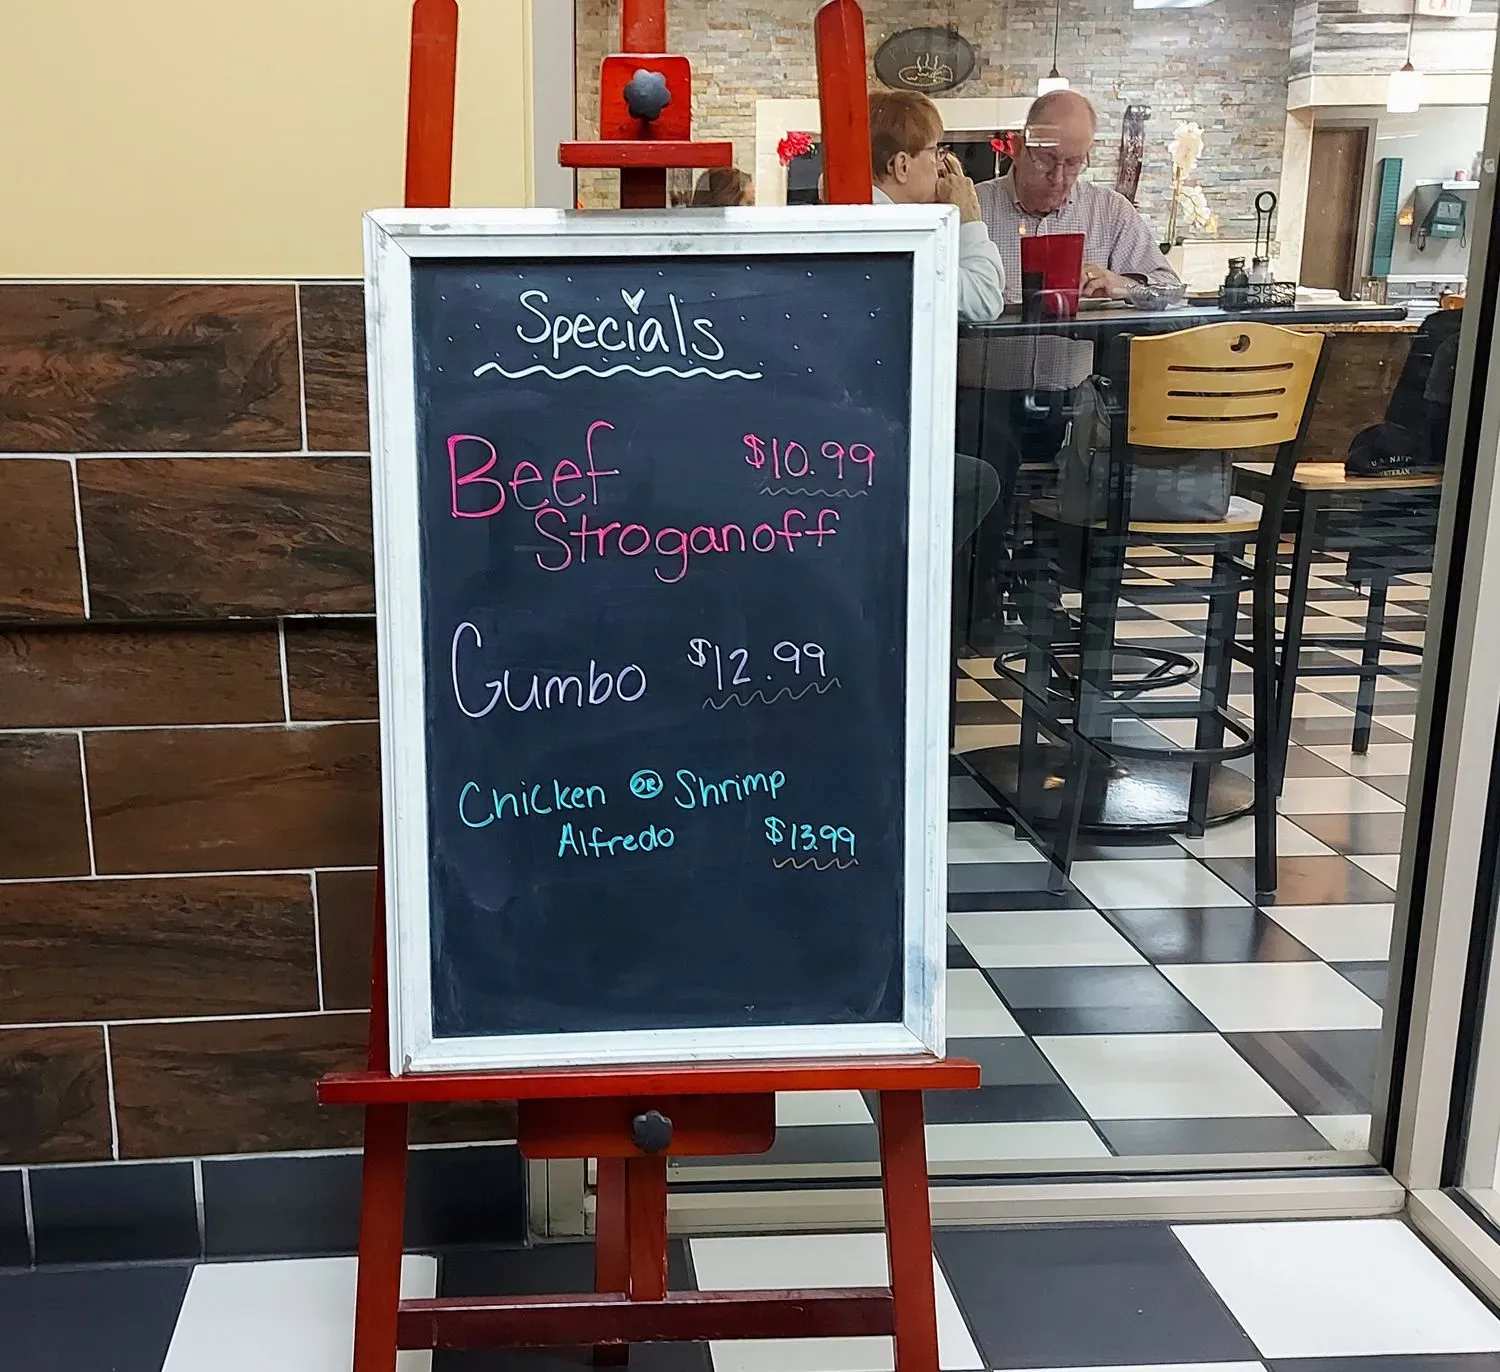 Specials
Beef $10.99
Stroganoff
Gumbo $12.99
Chicken OR Shrimp
Alfredo $13.99
U.S. NAVY
VETERAN
EXIT